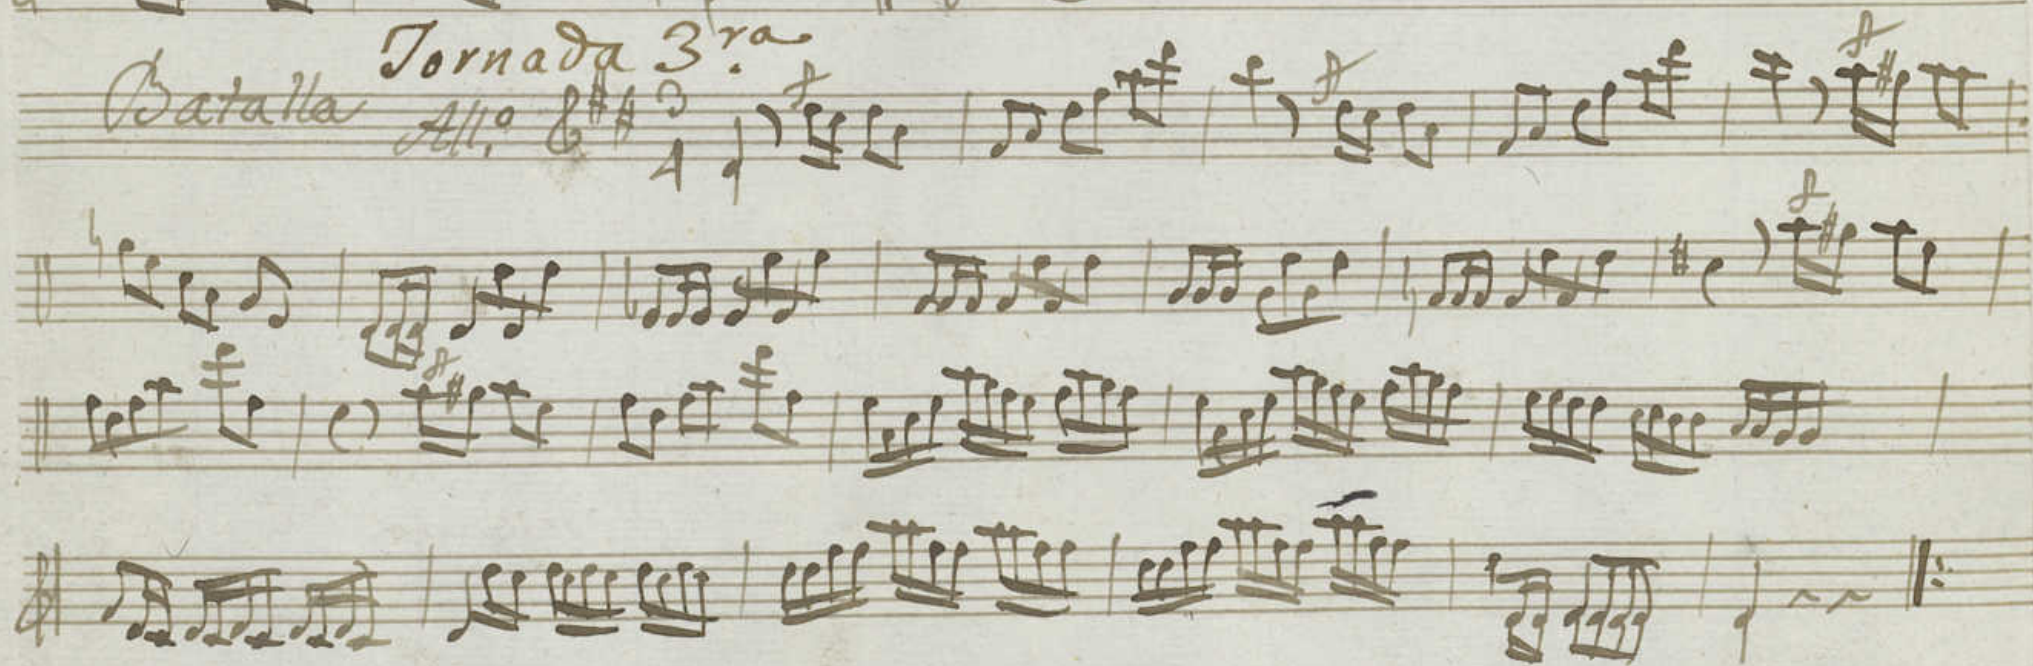 Jornada 3.ra
Batalla All.o 3 4